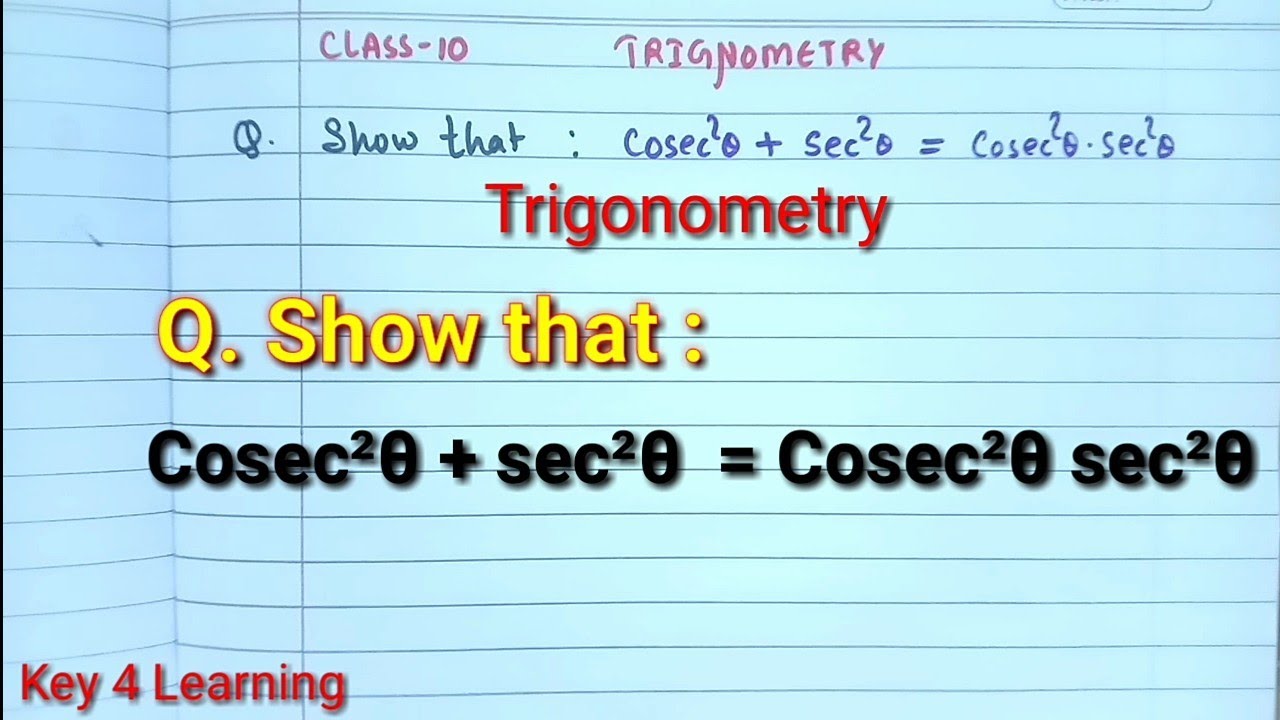 CLASS-10 TRIGNOMETRY
Q. Show that : Cosec²θ + sec²θ = Cosec²θ·sec²θ
Trigonometry
Q. Show that :
Cosec²θ + sec²θ = Cosec²θ sec²θ
Key 4 Learning